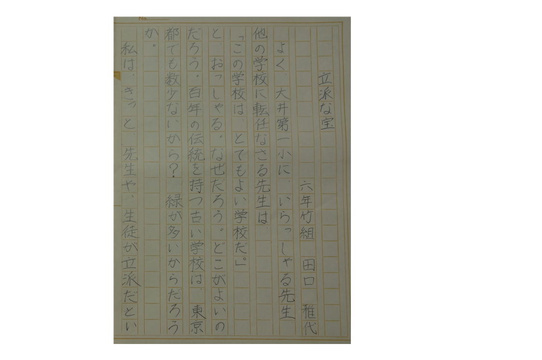 立派な宝
六年竹組 田口 雅代
よく 大井第一小に いらっしゃる先生
他の学校に転任なさる先生は
「この学校は とてもよい学校だ。」
と おっしゃる。なぜだろう。どこがよいの
だろう。百年の伝統を持つ古い学校は 東京
都でも数少ないから? 緑が多いからだろう
か。
私は、きっと 先生や、生徒が立派だとい